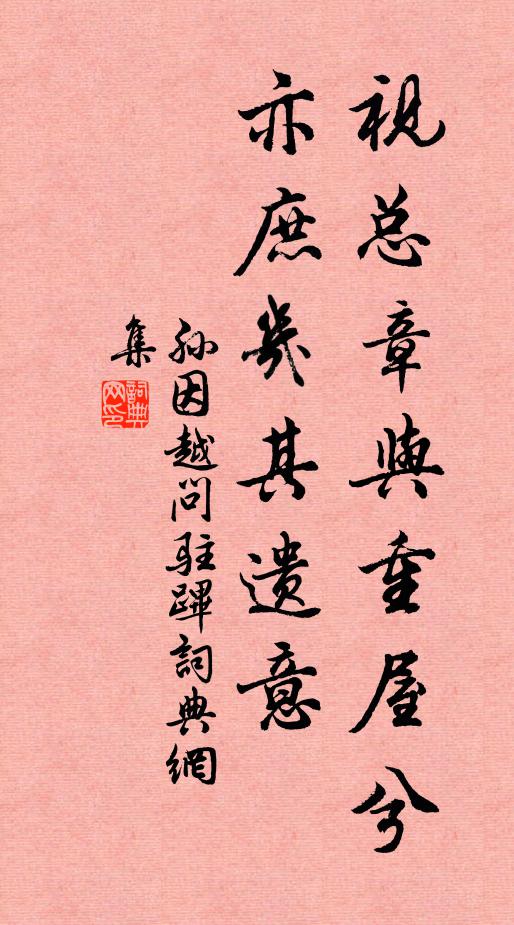 視总章與重屋兮
亦庶幾其遺意
孫因越問駐蹕詞典網
集
詞典
网印